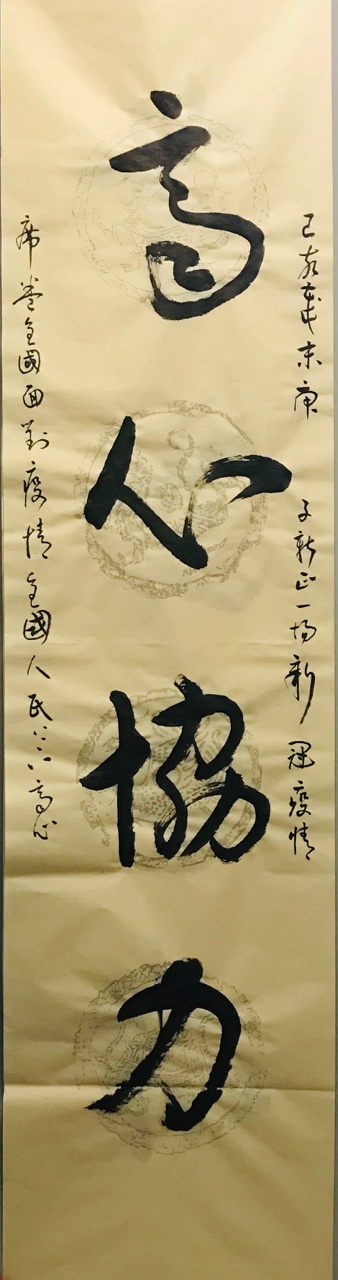 齊心協力
己亥年末庚子新正一场新冠疫情
席卷全國面對疫情全國人民齊心